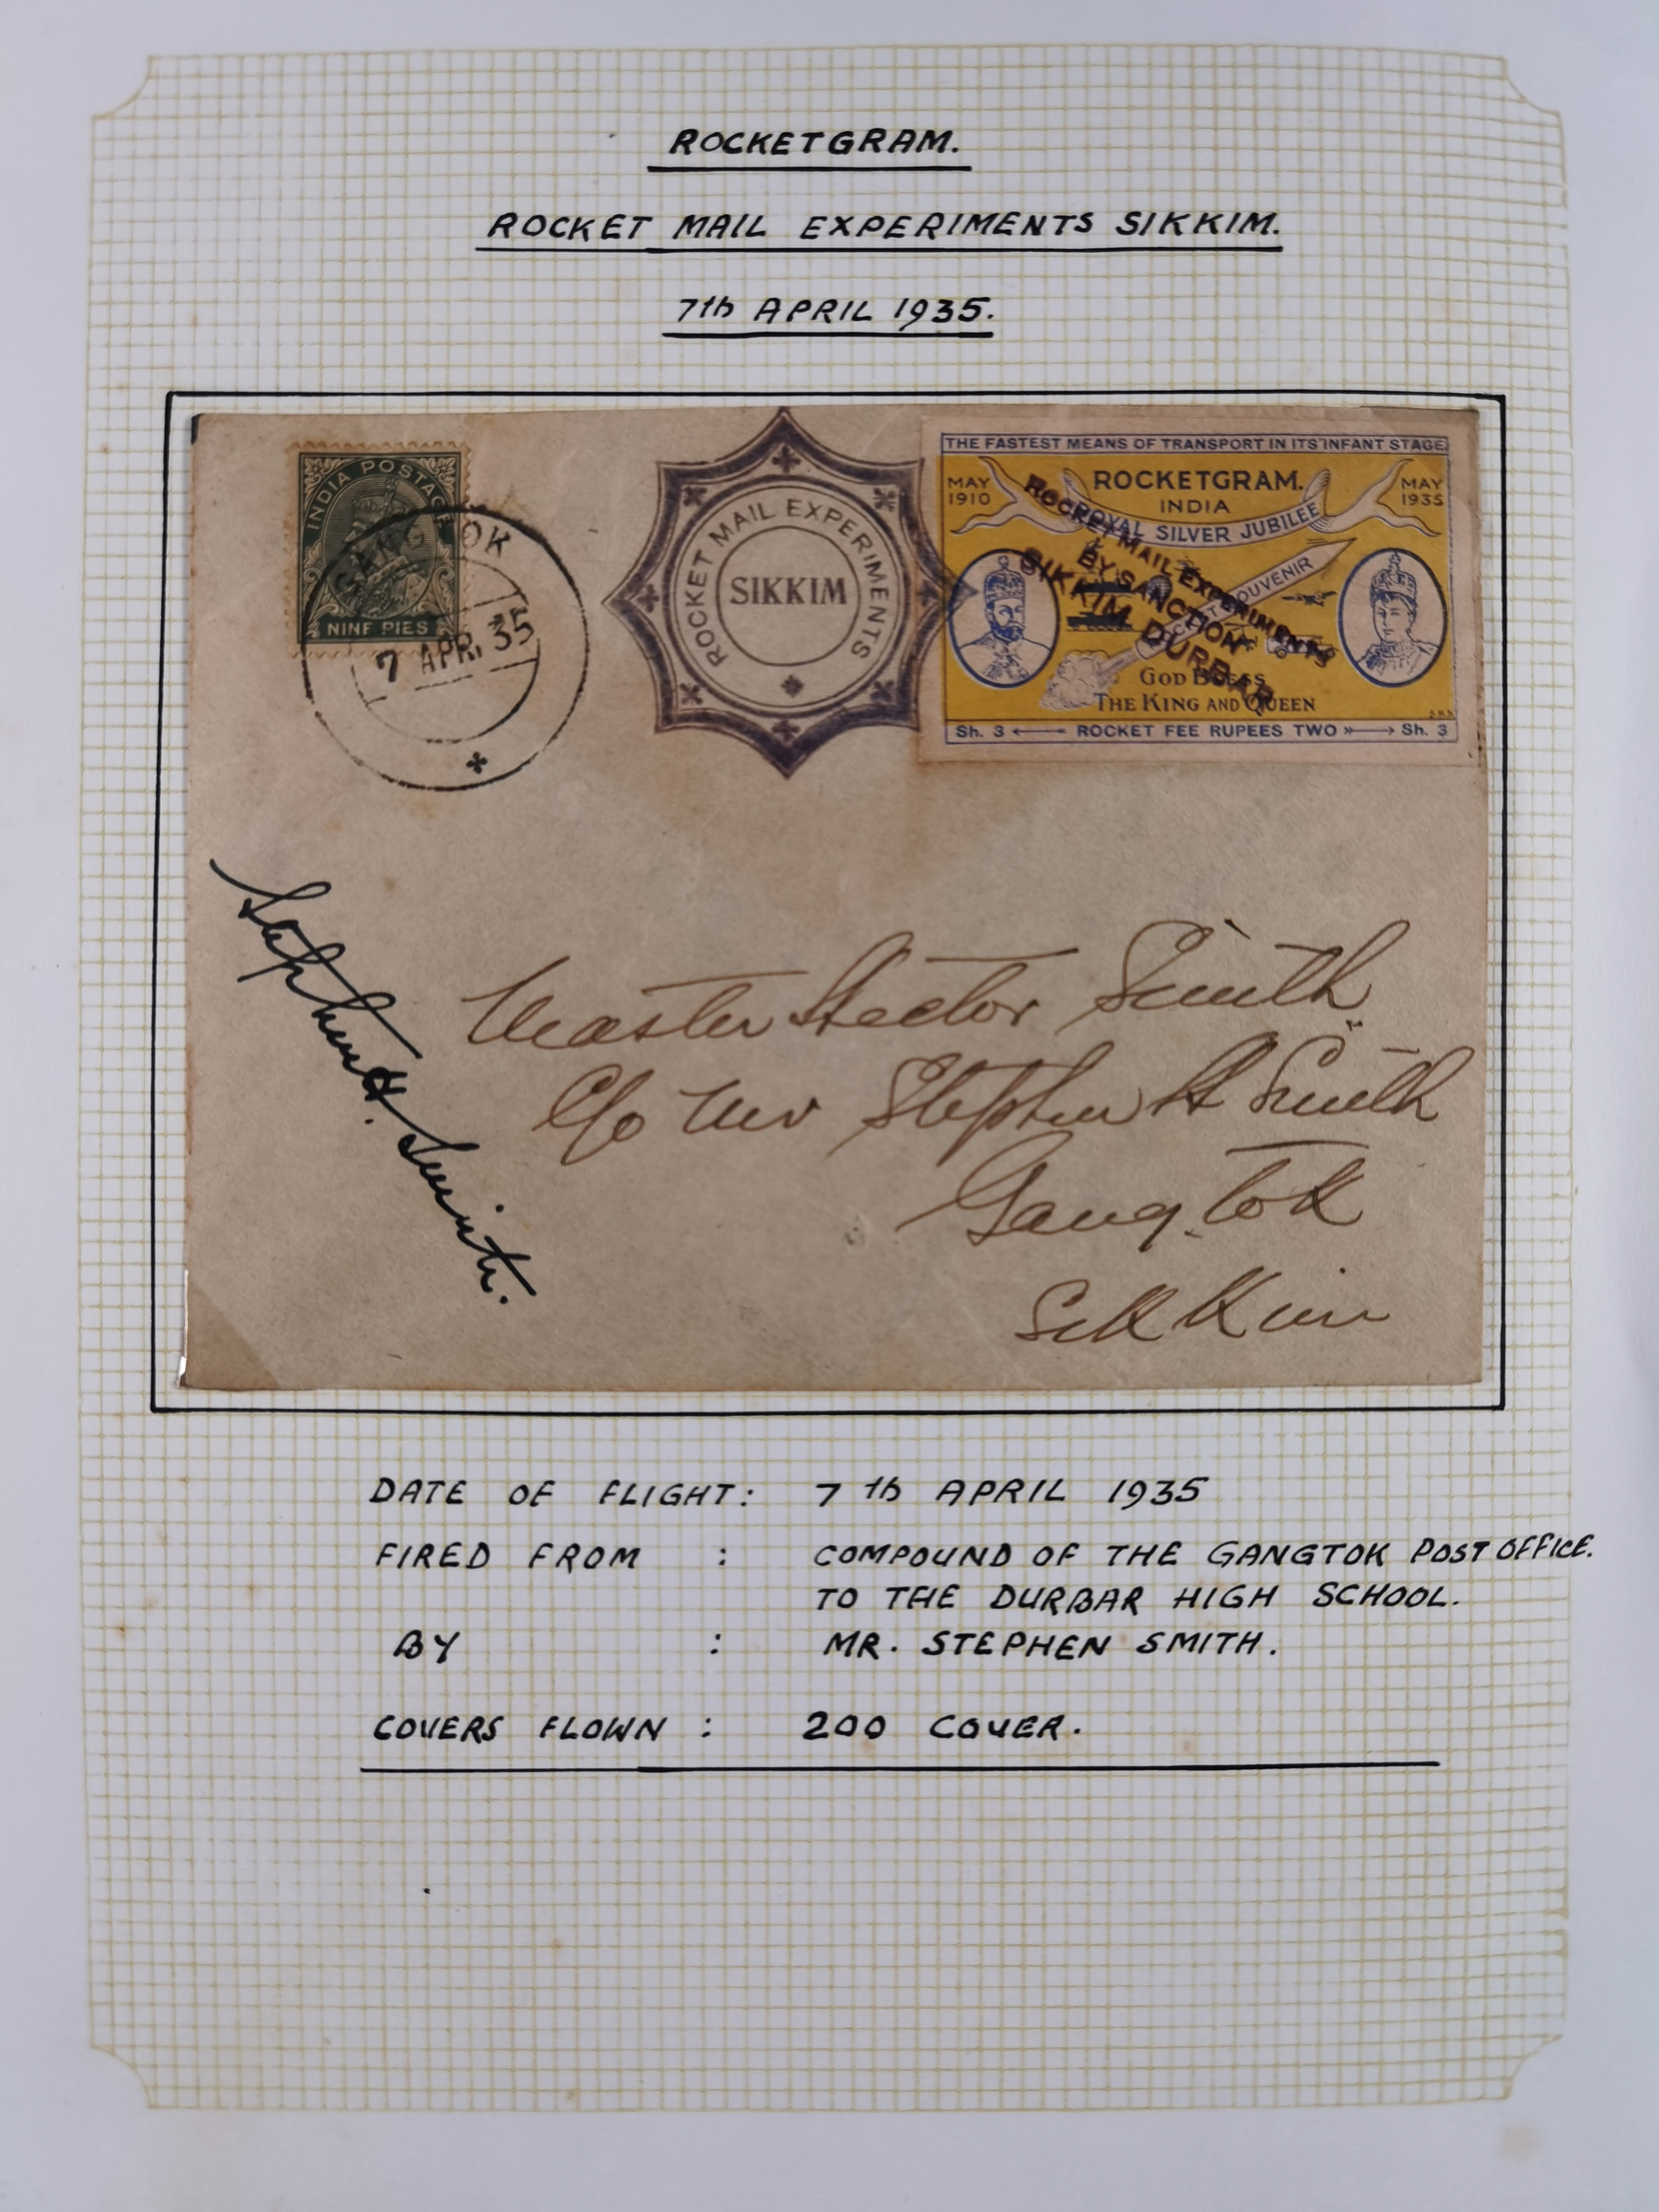 ROCKETGRAM.
ROCKET MAIL EXPERIMENTS SIKKIM.
7th APRIL 1935.
INDIA POSTAGE
NINE PIES
GANGTOK
7 APR. 35
ROCKET MAIL EXPERIMENTS
SIKKIM
THE FASTEST MEANS OF TRANSPORT IN ITS INFANT STAGE
MAY 1910
ROCKETGRAM.
MAY 1935
INDIA
ROYAL SILVER JUBILEE
SOUVENIR
ROCKET MAIL EXPERIMENTS
BY SANCTION
SIKKIM DURBAR
GOD BLESS
THE KING AND QUEEN
Sh. 3 ROCKET FEE RUPEES TWO Sh. 3
Stephen H. Smith.
Master Hector Smith
C/o Mr Stephen H Smith
Gangtok
Sikkim
DATE OF FLIGHT: 7th APRIL 1935
FIRED FROM : COMPOUND OF THE GANGTOK POST OFFICE.
TO THE DURBAR HIGH SCHOOL.
BY : MR. STEPHEN SMITH.
COVERS FLOWN : 200 COVER.